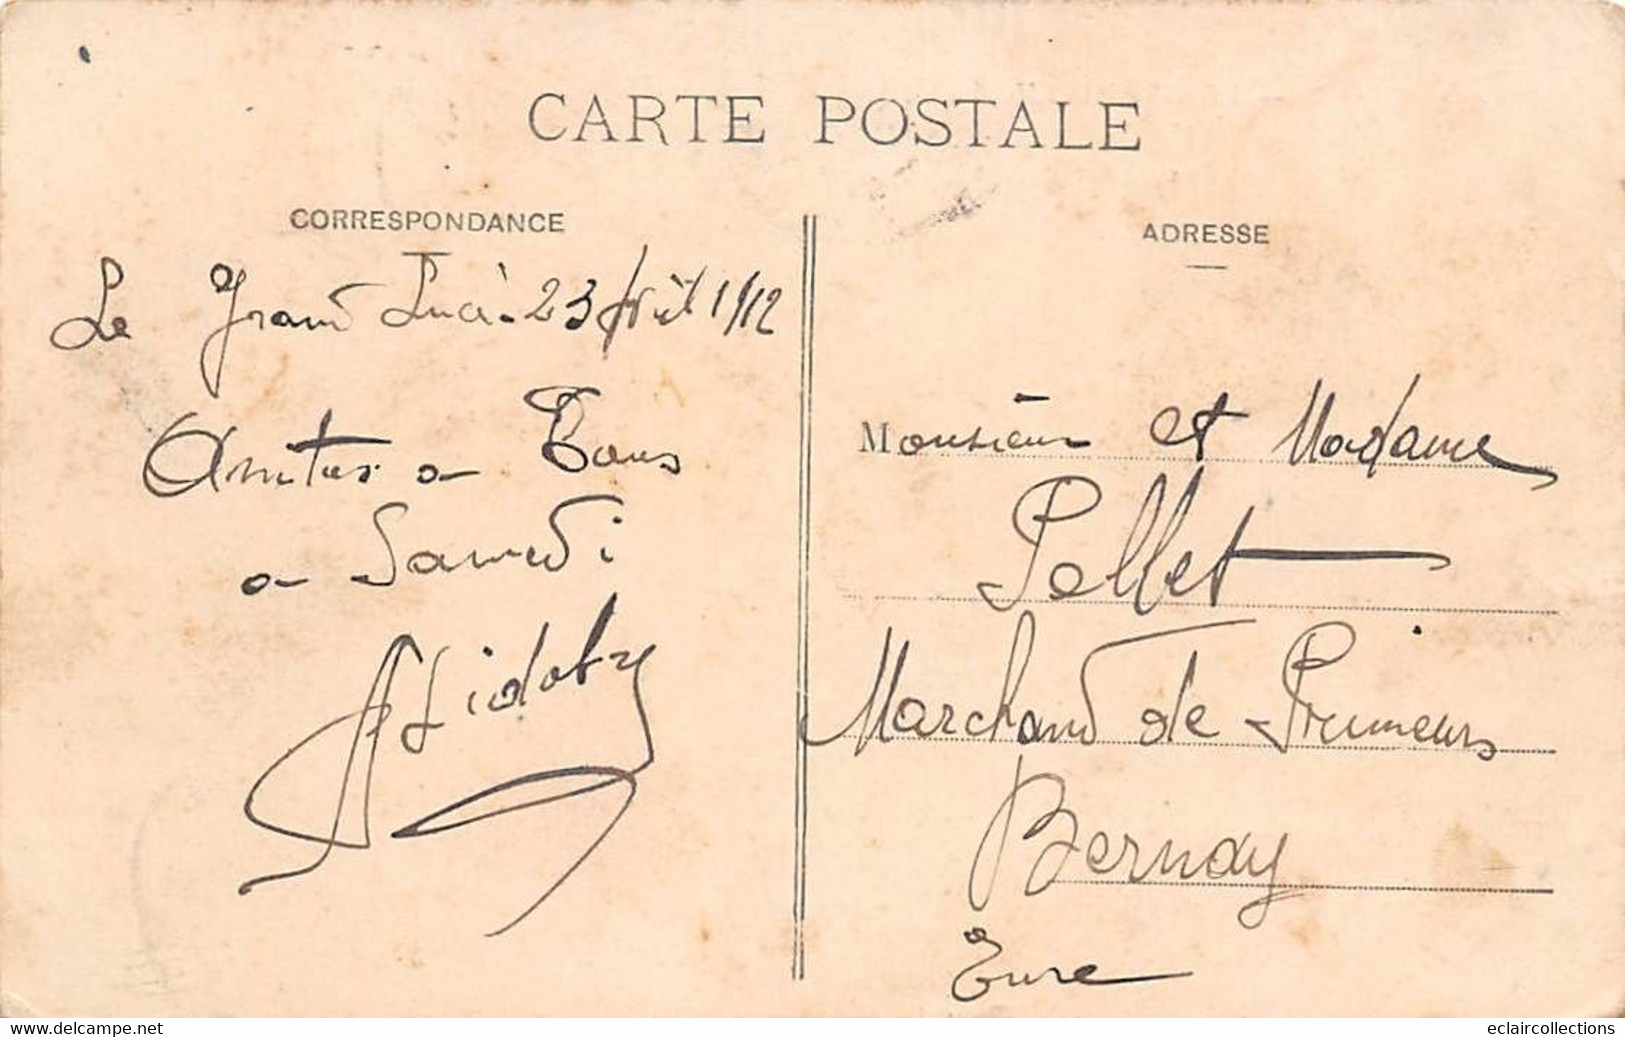 CARTE POSTALE
CORRESPONDANCE
Le Grand Lucé. 23 1912
Amitiés a Tous
a Samedi
ADRESSE
Monsieur et Madame
Pellet
Marchand de Primeurs
Bernay
Eure
www.delcampe.net
eclaircollections